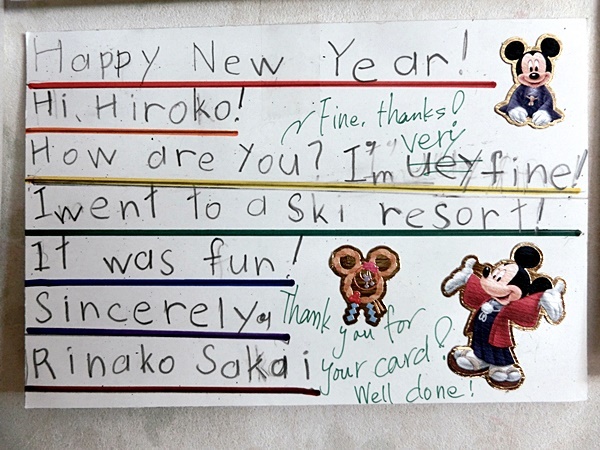 Happy New Year!
Hi, Hiroko!
Fine, thanks!
very
How are you? I'm uey fine!
I went to a ski resort!
It was fun!
Sincerely,
Rinako Sakai
Thank
you for
your card!
Well done!